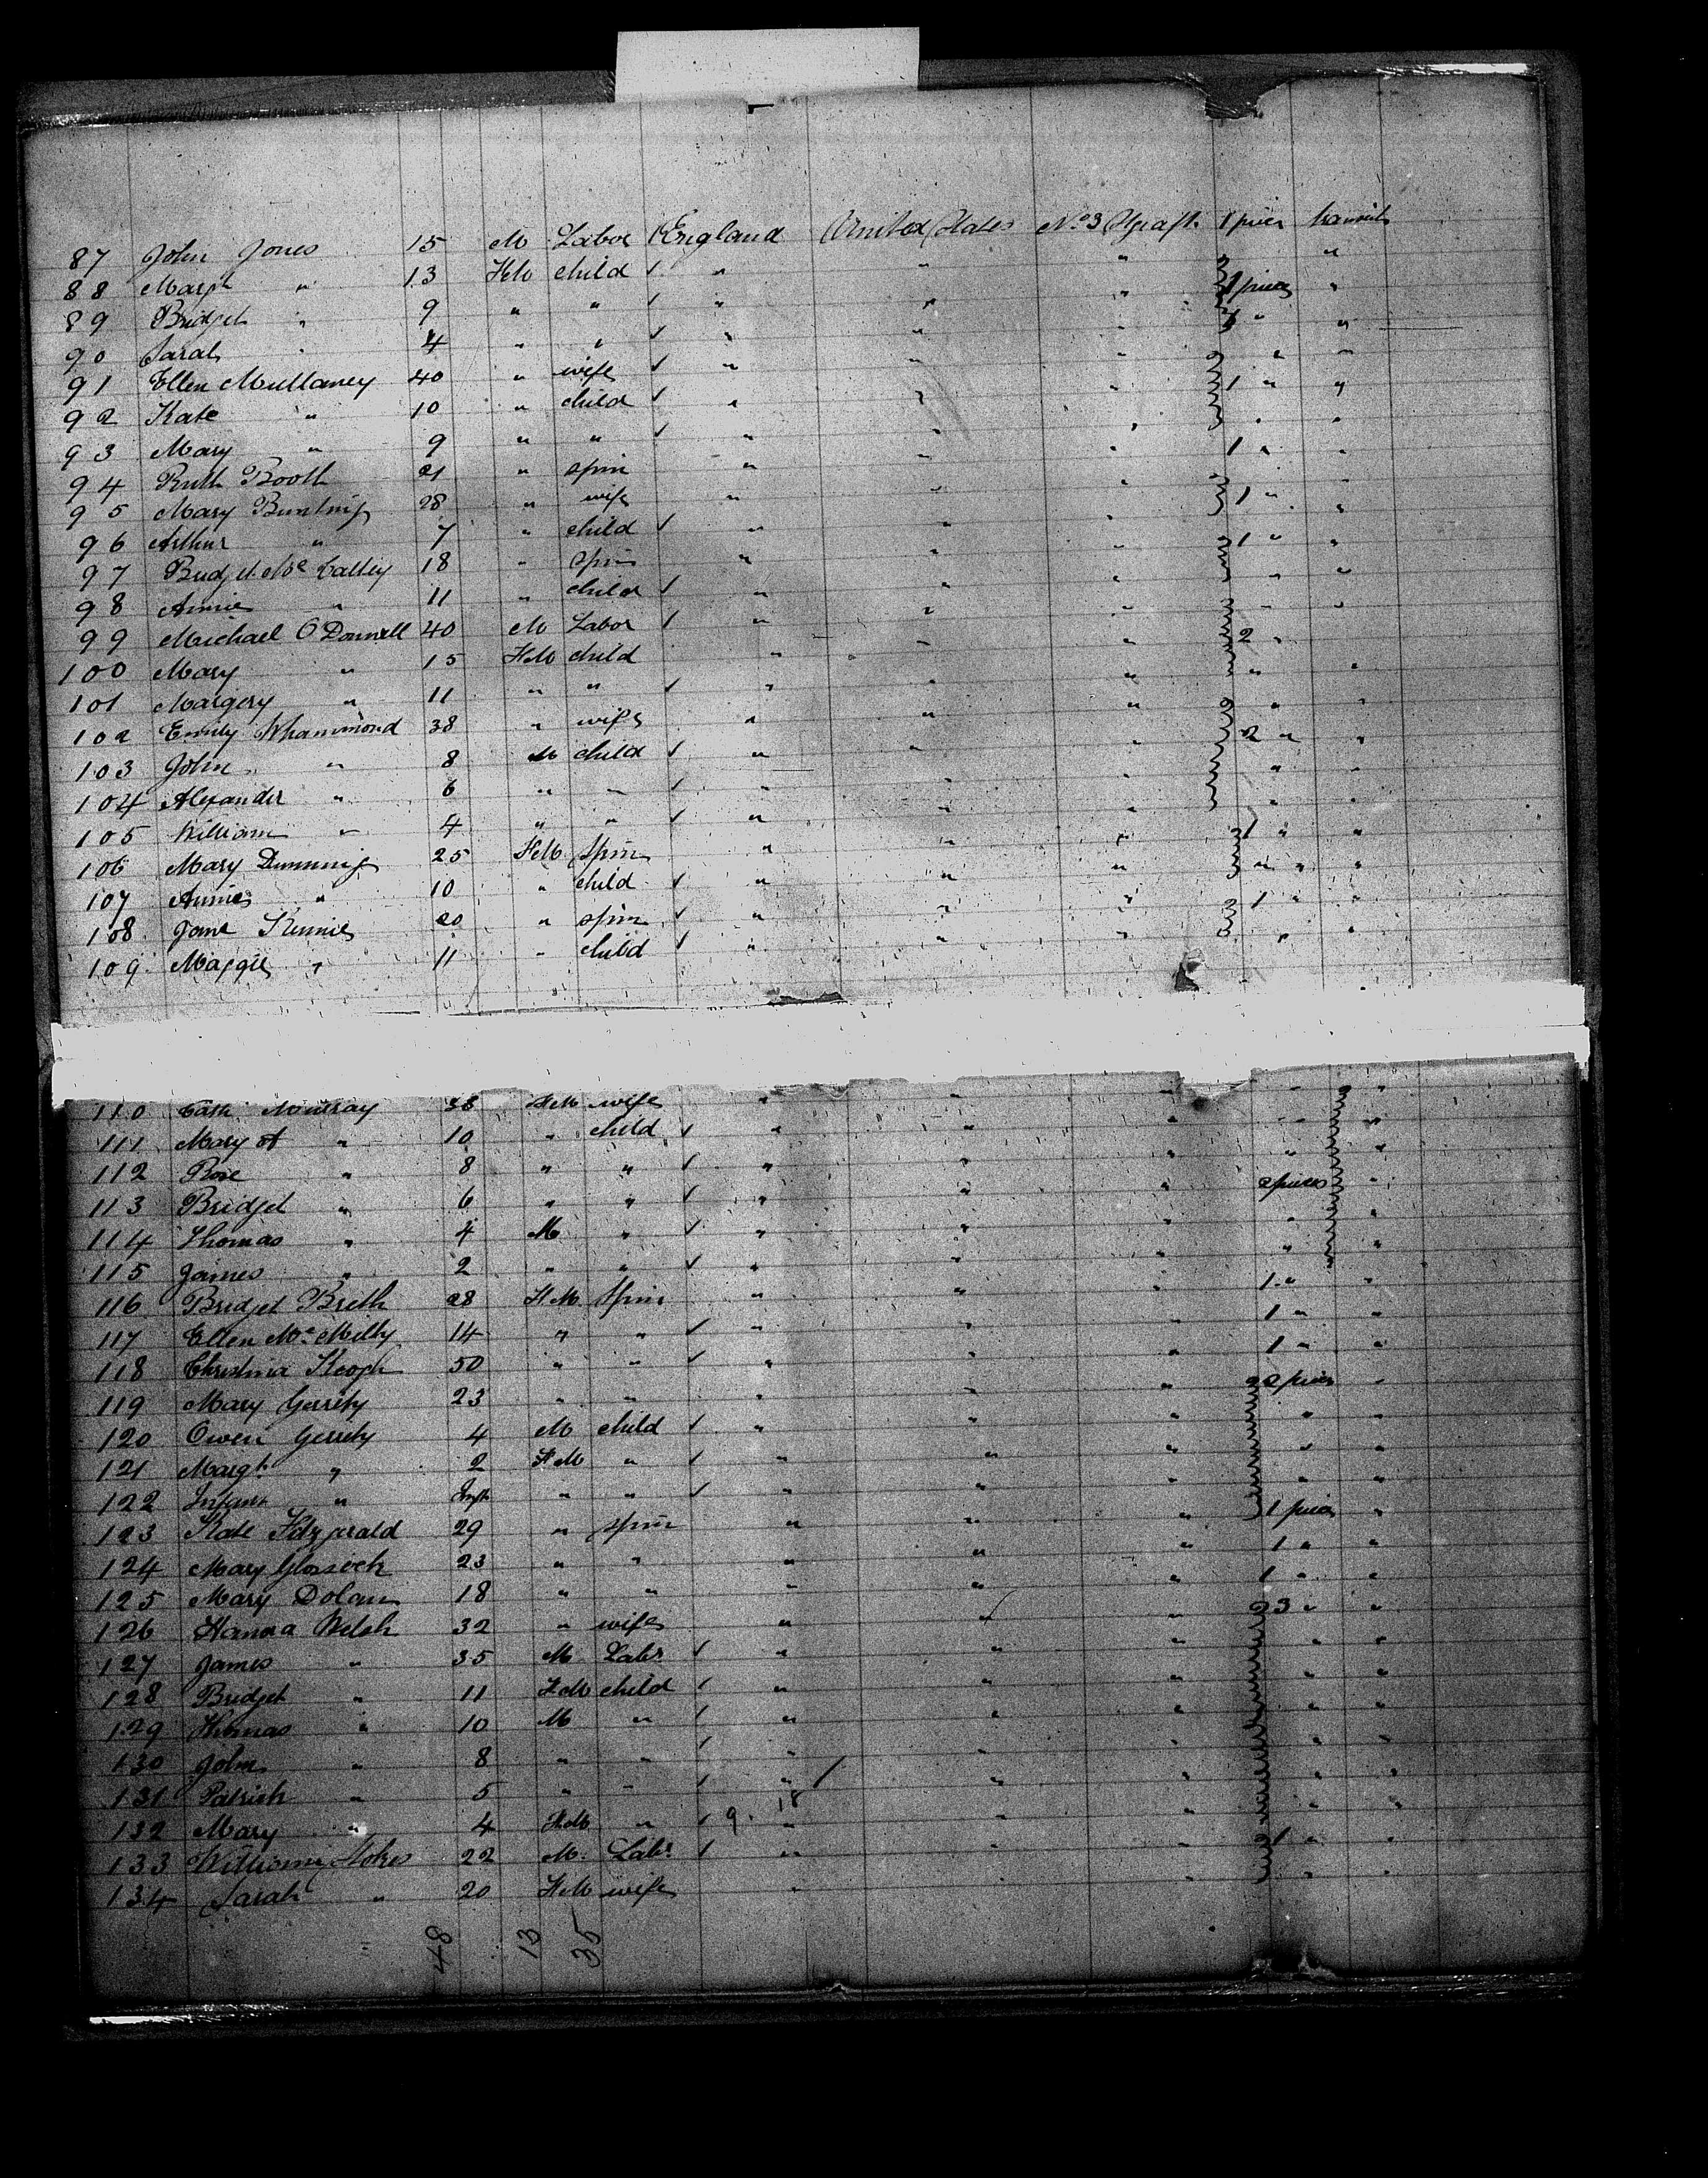 87 John Jones 15 M Labor England United States No 3 1 piece transit
88 Margt " 13 FeM child ✓ " " " "
89 Bridget " 9 " " ✓ " " " 1 piece "
90 Sarah " 4 " " ✓ " " " 1 " "
91 Ellen Mullaney 40 " wife ✓ " " " " "
92 Kate " 10 " child ✓ " " " 1 " "
93 Mary " 9 " " ✓ " " " " "
94 Ruth Booth 21 " spin " " " 1 " "
95 Mary Bunting 28 " wife " " " " "
96 Arthur " 7 " child ✓ " " " 1 " "
97 Bridget Mc 18 " spin " " " 1 " "
98 Annie " 11 " child ✓ " " " " "
99 Michael O'Donnell 40 M Labor ✓ " " " " "
100 Mary " 15 FeM child " " " 2 "
101 Margery " 11 " " ✓ " " " " "
102 Emily 38 " wife " " " " "
103 John " 8 M child ✓ " " " 2 " "
104 Alexander " 6 " " ✓ " " " " "
105 William " 4 " " ✓ " " " " "
106 Mary Dunning 25 FeM Spin " " " 1 " "
107 Annie " 10 " child ✓ " " " " "
108 Jane Kennie 20 " spin ✓ " " " 1 " "
109 Maggie " 11 " child ✓ " " " " "
110 Cath Murray 38 FeM wife " " " " "
111 Mary A " 10 " child ✓ " " " " "
112 Rose " 8 " " ✓ " " " " "
113 Bridget " 6 " " ✓ " " " 2 pieces "
114 Thomas " 4 M " ✓ " " " " "
115 James " 2 " " ✓ " " " " "
116 Bridget 28 FeM Spin " " " 1 " "
117 Ellen Mc 14 " " ✓ " " " 1 " "
118 Christina Keogh 50 " " ✓ " " " 1 " "
119 Mary Gerrity 23 " " " " " 2 pieces "
120 Owen Gerrity 4 M child ✓ " " " " "
121 Margt " 2 FeM " ✓ " " " " "
122 Infant " Inft " " ✓ " " " " "
123 Kate Fitzgerald 29 " spin " " " 1 piece "
124 Mary 23 " " " " " 1 " "
125 Mary Dolan 18 " " " " " 1 " "
126 Hanna Welsh 32 " wife " " " 3 " "
127 James " 35 M Labr ✓ " " " " "
128 Bridget " 11 FeM child ✓ " " " " "
129 Thomas " 10 M " ✓ " " " " "
130 John " 8 " " ✓ " " " " "
131 Patrick " 5 " " ✓ " " " " "
132 Mary " 4 FeM " ✓ 9 . 18 " " " " "
133 William Stokes 22 M. Labr ✓ " " 1 " "
134 Sarah " 20 FeM wife " " "
48 13 35